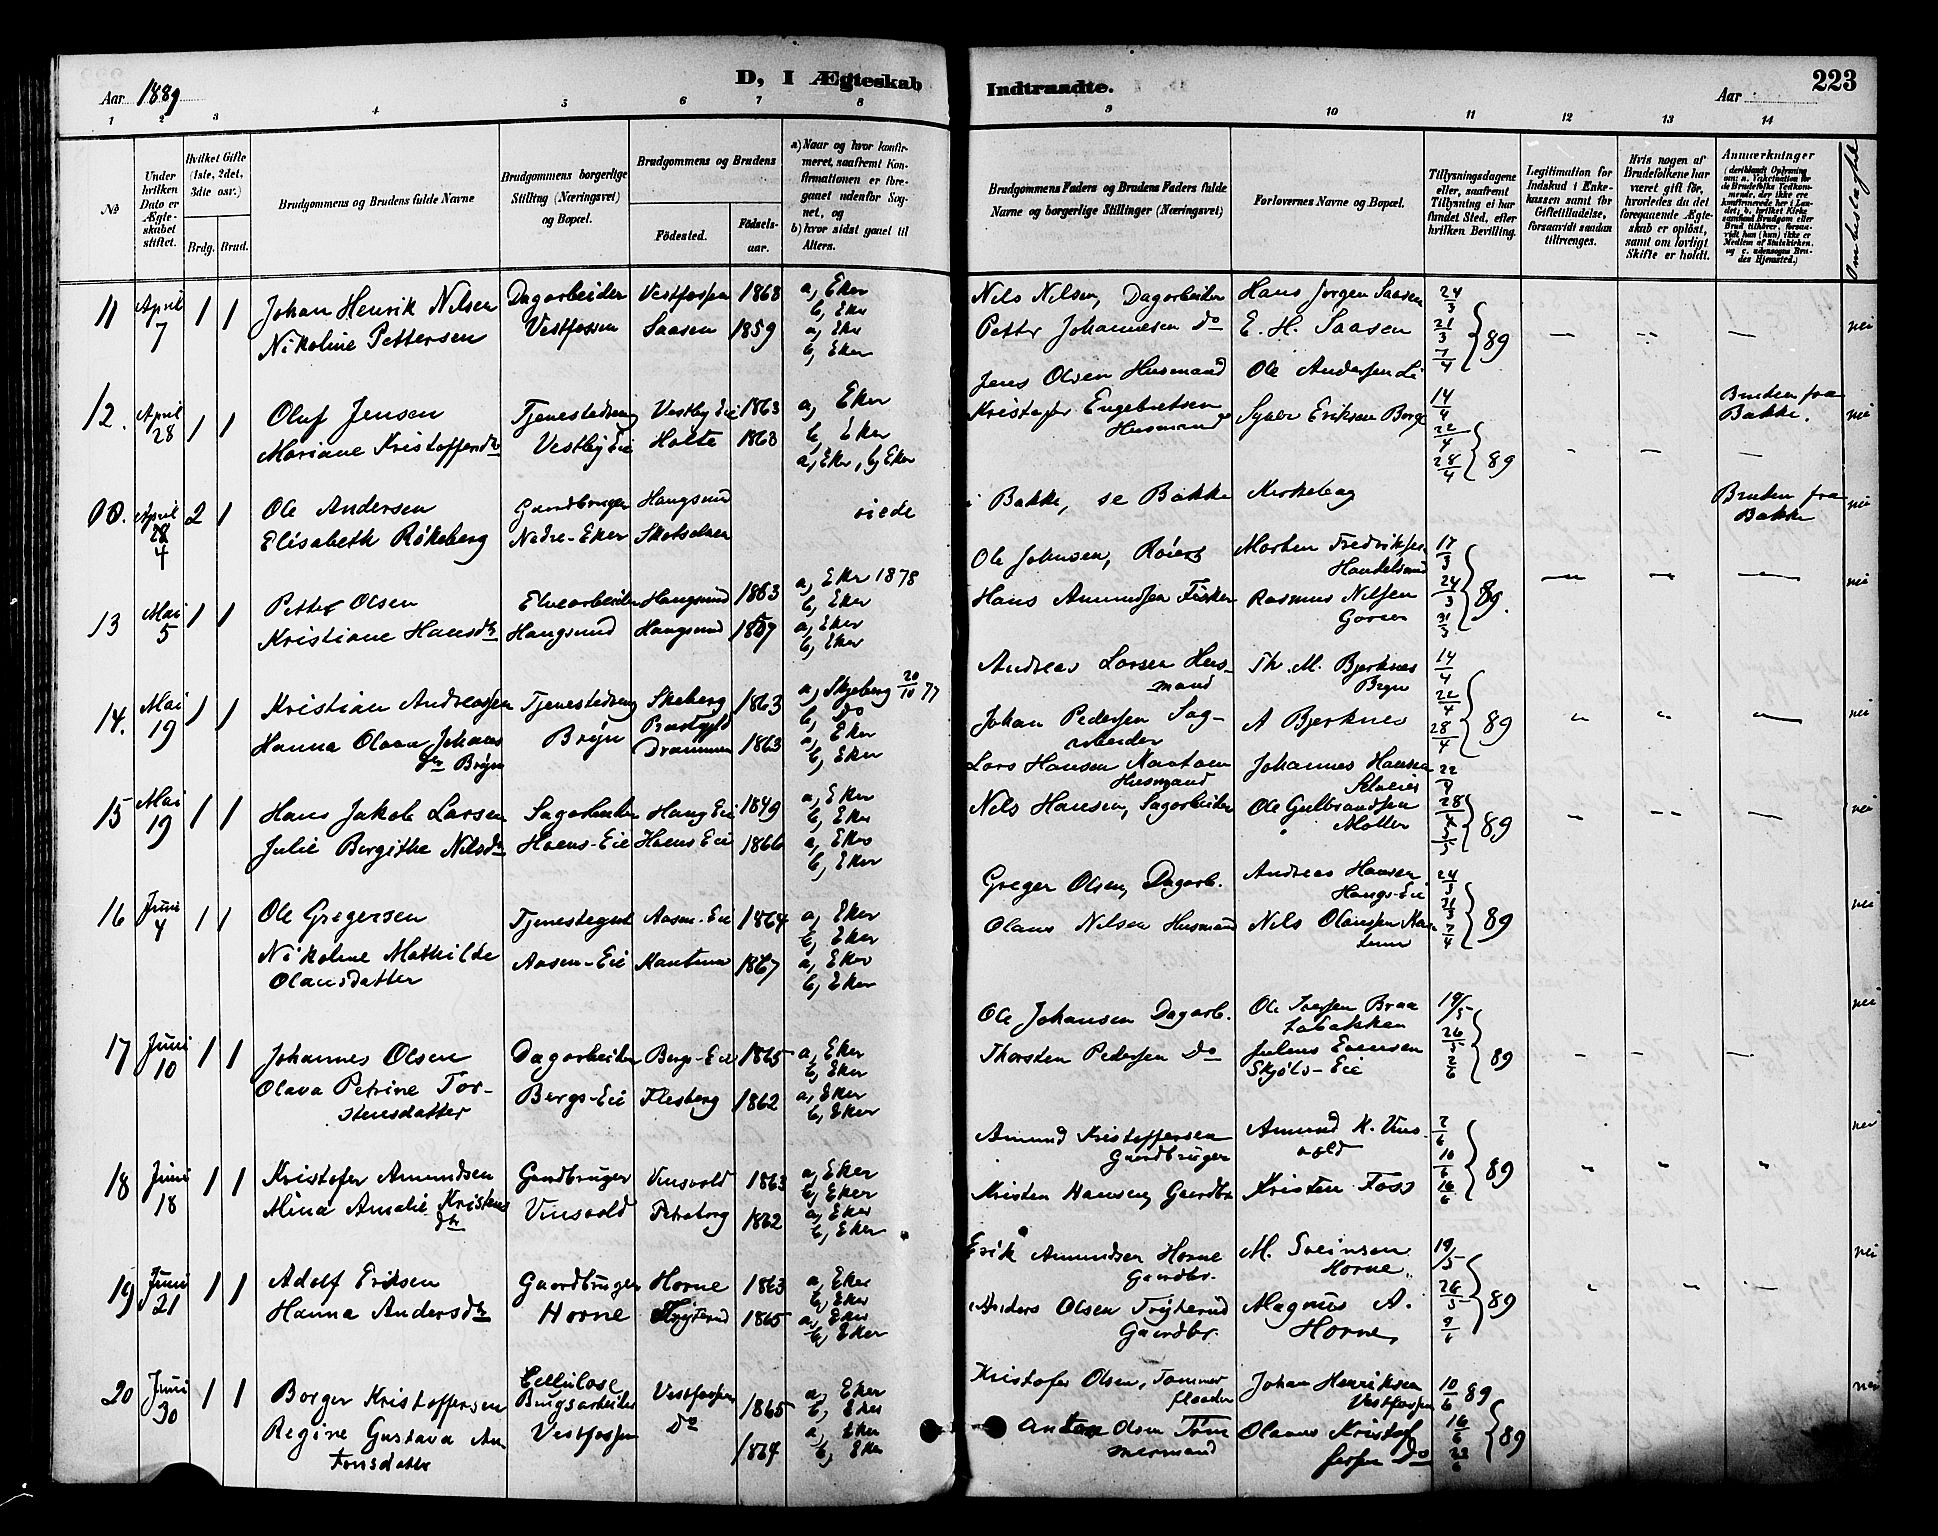 Aar 1889
D, I Ægteskab Indtraadte.
Aar
223
1 2 3 4 5 6 7 8 9 10 11 12 13 14
No
Under hvilken Dato er Ægteskabet stiftet.
Hvilket Gifte (1ste, 2det, 3die osv.)
Brdg. Brud.
Brudgommens og Brudens fulde Navne
Brudgommens borgerlige Stilling (Næringsvei) og Bopæl.
Brudgommens og Brudens
Fødested.
Fødselsaar.
a) Naar og hvor konfirmeret, saafremt Konfirmationen er foregaaet udenfor Sognet, og
b) hvor sidst gaaet til Alters.
Brudgommens Faders og Brudens Faders fulde Navne og borgerlige Stillinger (Næringsvei)
Forlovernes Navne og Bopæl.
Tillysningsdagene eller, saafremt Tillysning ei har fundet Sted, efter hvilken Bevilling.
Legitimation for Indskud i Enkekassen samt for Giftetilladelse, forsaavidt saadan tiltrænges.
Hvis nogen af Brudefolkene har været gift før, hvorledes da det foregaaende Ægteskab er opløst, samt om lovligt Skifte er holdt.
Anmærkninger
11 April 7 1 1 Johan Henrik Nilsen Dagarbeider Vestfossen 1868 a, Eker b, Eker
Nikoline Pettersen Vestfossen Saasen 1859 a, Eker b, Eker
Nils Nilsen, Dagarbeider Hans Jørgen Saasen 24/3
Petter Johannesen Do E. H. Saasen 21/3 7/4 89 nei
12. April 28 1 1 Oluf Jensen Tjenestedreng Vestby Eie 1863 a, Eker b, Eker
Mariane Kristoffersdtr Vestby Eie Holte 1863 a, Eker, b, Eker
Jens Olsen Husmand Ole Andersen Li 14/4
Kristoffer Engebretsen Husmand Syver Eriksen Berg 22/4 28/4 89 Bruden fra Bakke. nei
00. April 28 4 2 1 Ole Andersen Gaardbruger Hougsund viede
Elisabeth Røkeberg Nedre-Eker Skotselven
i Bakke, se Bakke Kirkebog Bruden fra Bakke nei
13 Mai 5 1 1 Petter Olsen Elvearbeider Hougsund 1863 a, Eker 1878 b, Eker
Kristiane Hansdtr Hougsund Hougsund 1867 a, Eker b, Eker
Ole Johnsen, Morten Fredriksen Handelsmd 17/3
Hans Amundsen Fisker Rasmus Nilsen 24/3 31/3 89. nei
14. Mai 19 1 1 Kristian Andreassen Tjenestedreng Skeberg 1863 a, Skjeberg 20/10 77 b, Do
Hanna Olava Johansdtr Bryn Bryn Drammen 1863 a, Eker b, Eker
Andreas Larsen Husmand Th. M. Bjerknes Bryn 14/4
Johan Pedersen Sagarbeider A Bjerknes 22/4 28/4 89 nei
15 Mai 19 1 1 Hans Jakob Larsen Sagarbeider Houg Eie 1849 a, Eker b, Eker
Julie Bergithe Nilsdtr Hoens-Eie Hoens Eie 1866 a, Eker b, Eker
Lars Hansen Husmand Johannes Hansen 22
Nils Hansen, Sagarbeider Ole Gulbrandsen 28/4 5/5 89 nei
16 Juni 4 1 1 Ole Gregersen Tjenestegut Aasen-Eie 1864 a, Eker b, Eker
Nikoline Mathilde Olausdatter Aasen-Eie 1867 a, Eker b, Eker
Greger Olsen, Dagarb. Andreas Hansen Hougs-Eie 24/3
Olaus Nilsen Husmand Nils Olaussen 31/3 7/4 89 nei
17 Juni 10 1 1 Johannes Olsen Dagarbeider Bergs-Eie 1865 a, Eker b, Eker
Olava Petrine Torstensdatter Bergs-Eie Flesberg 1862 a, Eker b, Eker
Ole Johansen Dagarb. Ole Iversen Braatabakken 19/5
Thorsten Pedersen Do Julius Evensen Skjøls-Eie 26/5 2/6 89 nei
18 Juni 18 1 1 Kristofer Amundsen Gaardbruger Vinsvold 1863 a, Eker b, Eker
Mina Amalie Kristensdtr Vinsvold 1862 a, Eker b, Eker
Amund Kristoffersen Gaardbruger Amund K. Vinsvold 2/6
Kristen Hansen, Gaardbr Kristen Foss 10/6 16/6 89 nei
19 Juni 21 1 1 Adolf Eriksen Gaardbruger Horne 1863 a, Eker b, Eker
Hanna Andersdtr Horne Tryterud 1865 a, Eker b, Eker
Erik Amundsen Horne Gaardbr. M. Sveinsen Horne 19/5
Anders Olsen Tryterud Gaardbr. Magnus A. Horne 26/5 9/6 89 nei
20 Juni 30 1 1 Borger Kristoffersen Cellulose Brugsarbeider Vestfossen 1865 a, Eker b, Eker
Regine Gustava Antonsdatter Vestfossen Do 1864 a, Eker b, Eker
Kristofer Olsen, Tømmerfløder Johan Henriksen Vestfossen 10/6 89
Anton Olsen Tømmermand Olaus Kristoffersen Do 16/6 23/6 89 nei